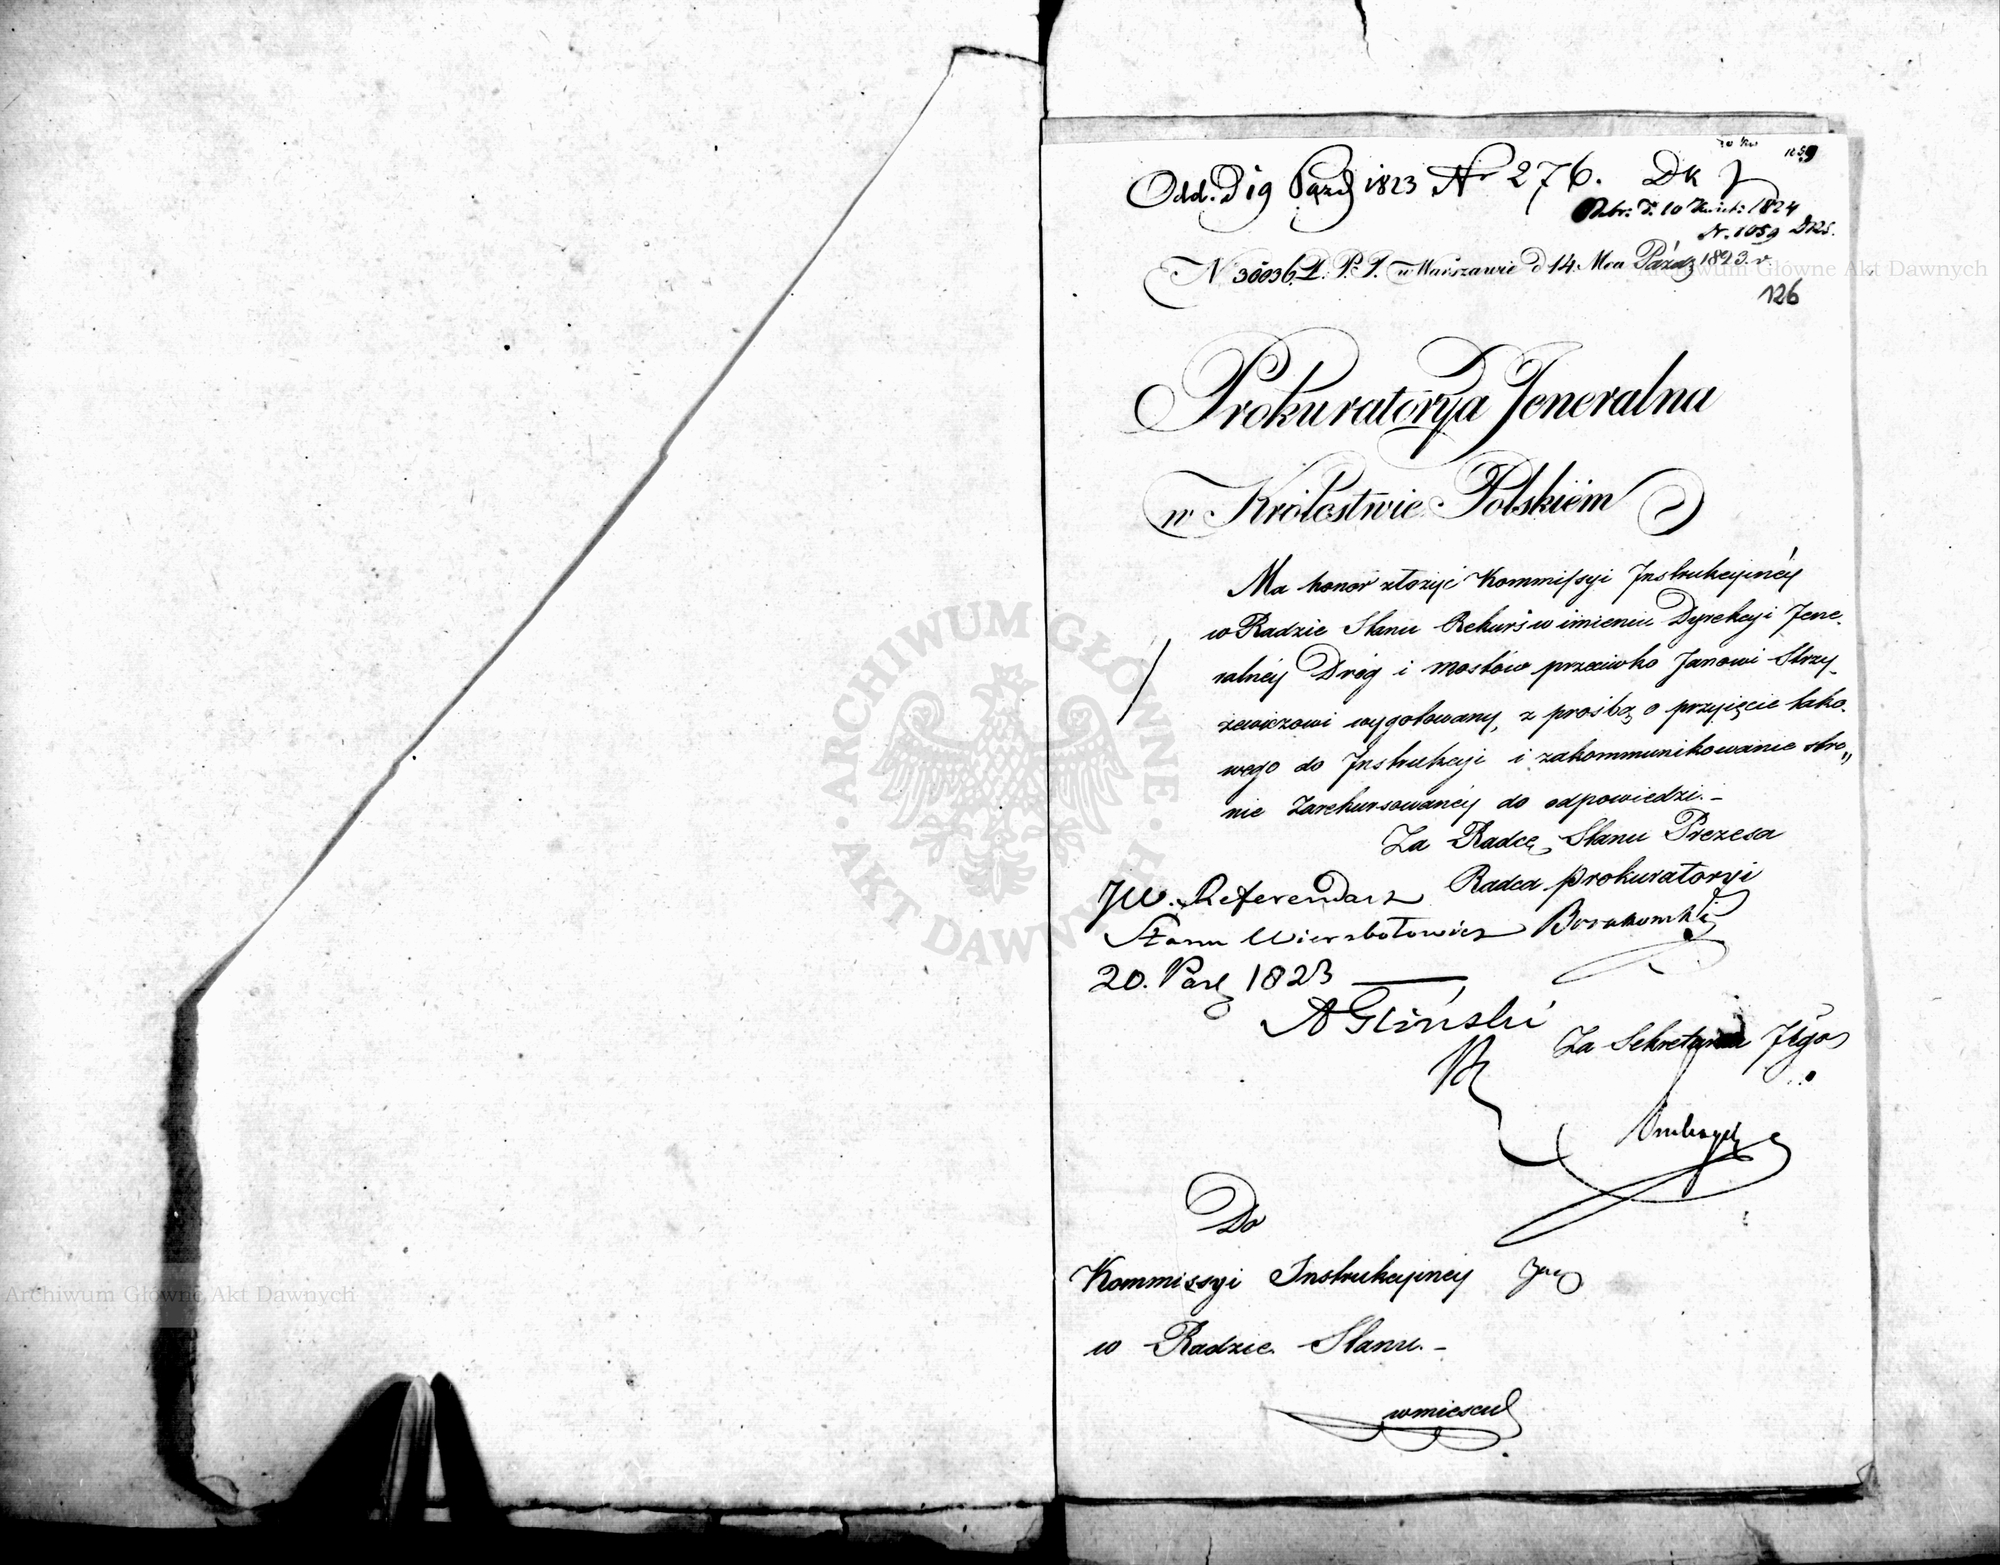 1059
Odd. D 19 Paźd 1823 Nr 276. DK
Obr: D. 10 Kwiet: 1824
N. 1059 DRS.
N 36036. L. P. J. w Warszawie d 14. Mca Paźdz 1823. r.
126
Prokuratorya Jeneralna
w Królestwie Polskiém
Ma honor złożyć Kommissyi Instrukcyinéy
w Radzie Stanu Rekurs w imieniu Dyrekcyi Jene-
ralnéy Dróg i mostów przeciwko Janowi Strzy-
żewiczowi wygotowany, z prośbą o przyięcie tako-
wego do Instrukcyi i zakommunikowanie stro„
nie Zarekursowanéy do odpowiedzi. –
Za Radcę Stanu Prezesa
Radca prokuratoryi
JW. Referendarz
Stanu Wierzbołowicz
20. Paźd 1823
AGliński
Za Sekretarza Jlgo
Do
Kommissyi Instrukcyiney
w Radzie Stanu. –
w miescu
ARCHIWUM GŁÓWNE AKT DAWNYCH
Archiwum Główne Akt Dawnych
Archiwum Główne Akt Dawnych